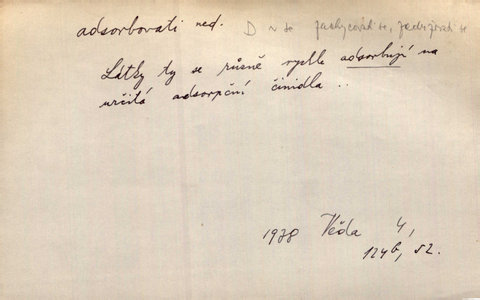 adsorbovati ned. D ~ se zachycovati se, zadržovati se
Látky ty se různě rychle adsorbují na
určitá adsorpční činidla ..
1938 Věda 4,
124b, 52.